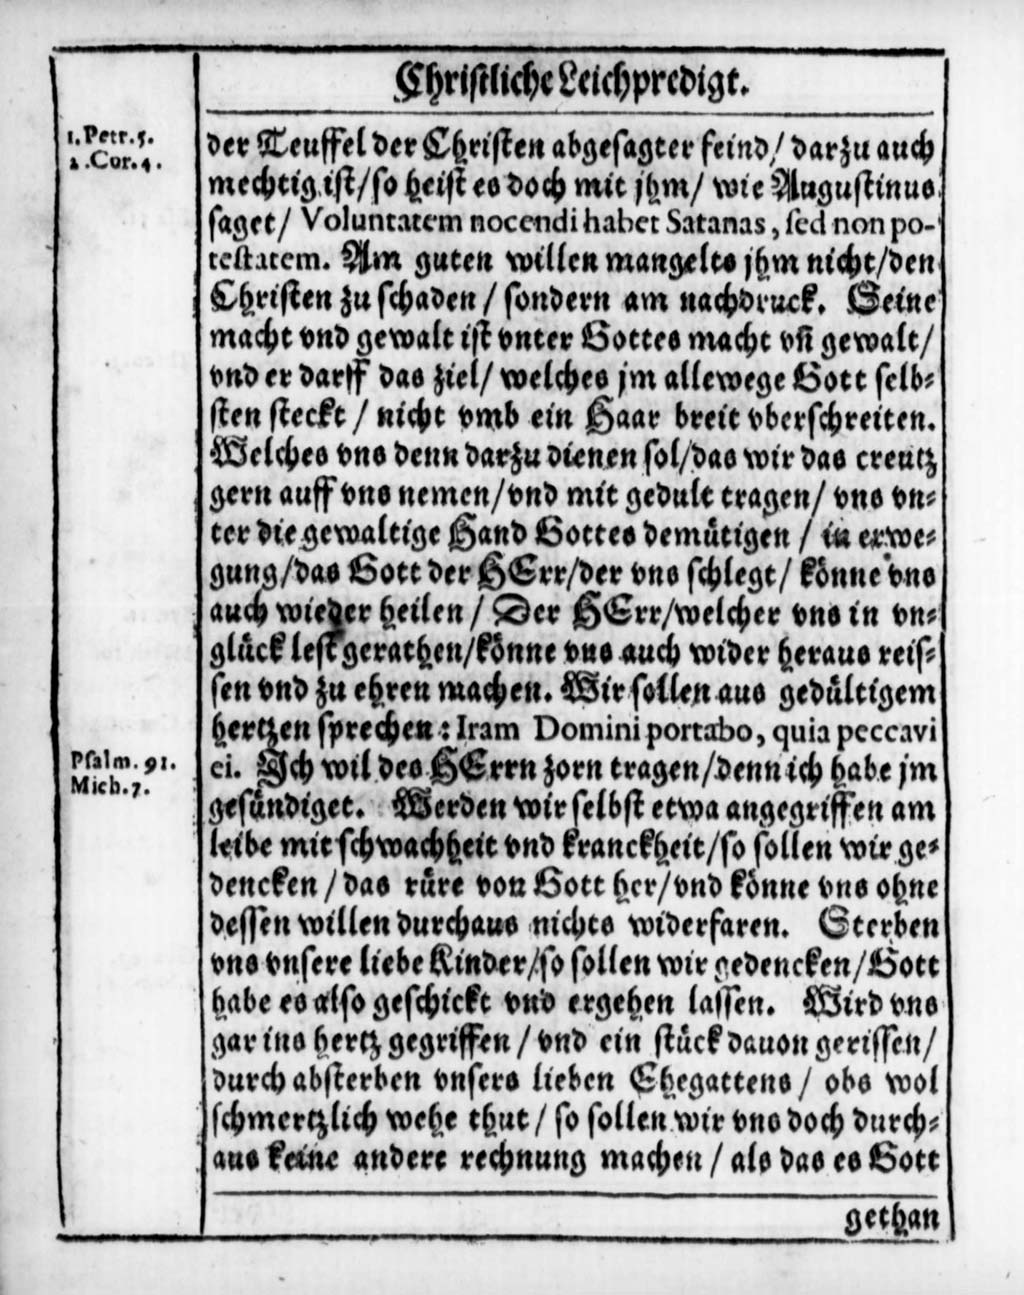 Christliche Leichpredigt.
1. Petr. 5.
2. Cor. 4.
der Teuffel der Christen abgesagter feind/ darzu auch
mechtig ist/ so heist es doch mit jhm/ wie Augustinus
saget/ Voluntatem nocendi habet Satanas, sed non po-
testatem. Am guten willen mangelts jhm nicht/ den
Christen zu schaden/ sondern am nachdruck. Seine
macht vnd gewalt ist vnter Gottes macht vñ gewalt/
vnd er darff das ziel/ welches jm allewege Gott selb-
sten steckt/ nicht vmb ein Haar breit vberschreiten.
Welches vns denn darzu dienen sol/ das wir das creutz
gern auff vns nemen/ vnd mit gedult tragen/ vns vn-
ter die gewaltige Hand Gottes demütigen/ in erwe-
gung/ das Gott der HErr/ der vns schlegt/ könne vns
auch wieder heilen/ Der HErr/ welcher vns in vn-
glück lest gerathen/ könne vns auch wider heraus reis-
sen vnd zu ehren machen. Wir sollen aus gedültigem
hertzen sprechen: Iram Domini portabo, quia peccavi
Psalm. 91.
Mich. 7.
ei. Ich wil des HErrn zorn tragen/ denn ich habe jm
gesündiget. Werden wir selbst etwa angegriffen am
leibe mit schwachheit vnd kranckheit/ so sollen wir ge-
dencken/ das rüre von Gott her/ vnd könne vns ohne
dessen willen durchaus nichts widerfaren. Sterben
vns vnsere liebe Kinder/ so sollen wir gedencken/ Gott
habe es also geschickt vnd ergehen lassen. Wird vns
gar ins hertz gegriffen/ vnd ein stück dauon gerissen/
durch absterben vnsers lieben Ehegattens/ obs wol
schmertzlich wehe thut/ so sollen wir vns doch durch-
aus keine andere rechnung machen/ als das es Gott
gethan